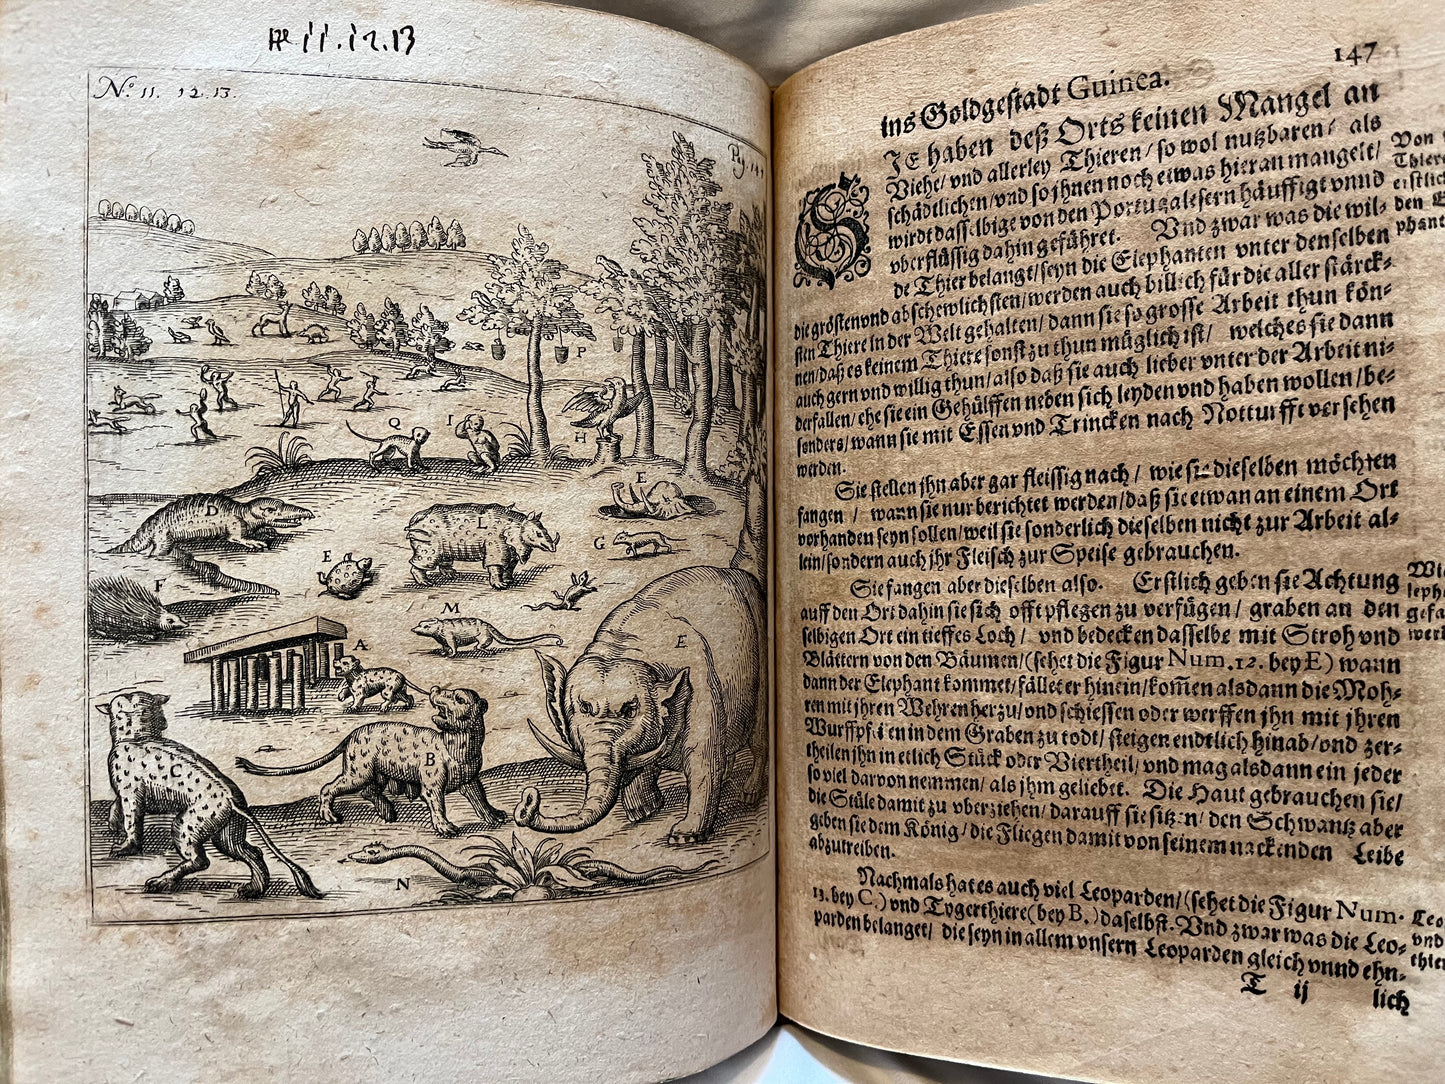 11.12.13
Nº. 11. 12. 13.
Pag. 147
P
Q
I
H
E
D
L
G
E
F
M
A
E
B
C
N
147
ins Goldgestadt Guinea.
SJE haben deß Orts keinen Mangel an
Viehe/ vnd allerley Thieren/ so wol nutzbaren/ als
schädtlichen/ vnd so jhnen noch etwas hieran mangelt/
wirdt dasselbige von den Portugalesern häuffigt vnnd
vberflüssig dahin geführet. Vnd zwar was die wil-
de Thier belangt/ seyn die Elephanten vnter denselben
die grösten vnd abschewlichsten/ werden auch billich für die aller stärck-
sten Thiere in der Welt gehalten/ dann sie so grosse Arbeit thun kön-
nen/ daß es keinem Thiere sonst zu thun müglich ist/ welches sie dann
auch gern vnd willig thun/ also daß sie auch lieber vnter der Arbeit ni-
derfallen/ ehe sie ein Gehülffen neben sich leyden vnd haben wollen/ be-
sonders/ wann sie mit Essen vnd Trincken nach Notturfft versehen
werden.
Sie stellen jhn aber gar fleissig nach/ wie sie dieselben möchten
fangen/ wann sie nur berichtet werden/ daß sie etwan an einem Ort
vorhanden seyn sollen/ weil sie sonderlich dieselben nicht zur Arbeit al-
lein/ sondern auch jhr Fleisch zur Speise gebrauchen.
Sie fangen aber dieselben also. Erstlich geben sie Achtung
auff den Ort dahin sie sich offt pflegen zu verfügen/ graben an den
selbigen Ort ein tieffes Loch/ vnd bedecken dasselbe mit Stroh vnd
Blättern von den Bäumen/ (sehet die Figur Num. 12. bey E) wann
dann der Elephant kommet/ fället er hinein/ kom̃en alsdann die Moh-
ren mit jhren Wehren herzu/ vnd schiessen oder werffen jhn mit jhren
Wurffpf. ien in dem Graben zu todt/ steigen endtlich hinab/ vnd zer-
theilen jhn in etlich Stück oder Viertheil/ vnd mag alsdann ein jeder
so viel darvon nemmen/ als jhm geliebt. Die Haut gebrauchen sie/
die Stüle damit zu vberziehen/ darauff sie sitzen/ den Schwantz aber
geben sie dem König/ die Fliegen damit von seinem nackenden Leibe
abzutreiben.
Nachmals hat es auch viel Leoparden/ (sehet die Figur Num.
13. bey C.) vnd Tygerthiere (bey B.) daselbst. Vnd zwar was die Leo-
parden belanget/ die seyn in allem vnsern Leoparden gleich vnnd ehn-
T ij lich
Von
Thiere
erstlich
den E
phant
Wie
leph
gefa
werd
Leo
vnd
thier